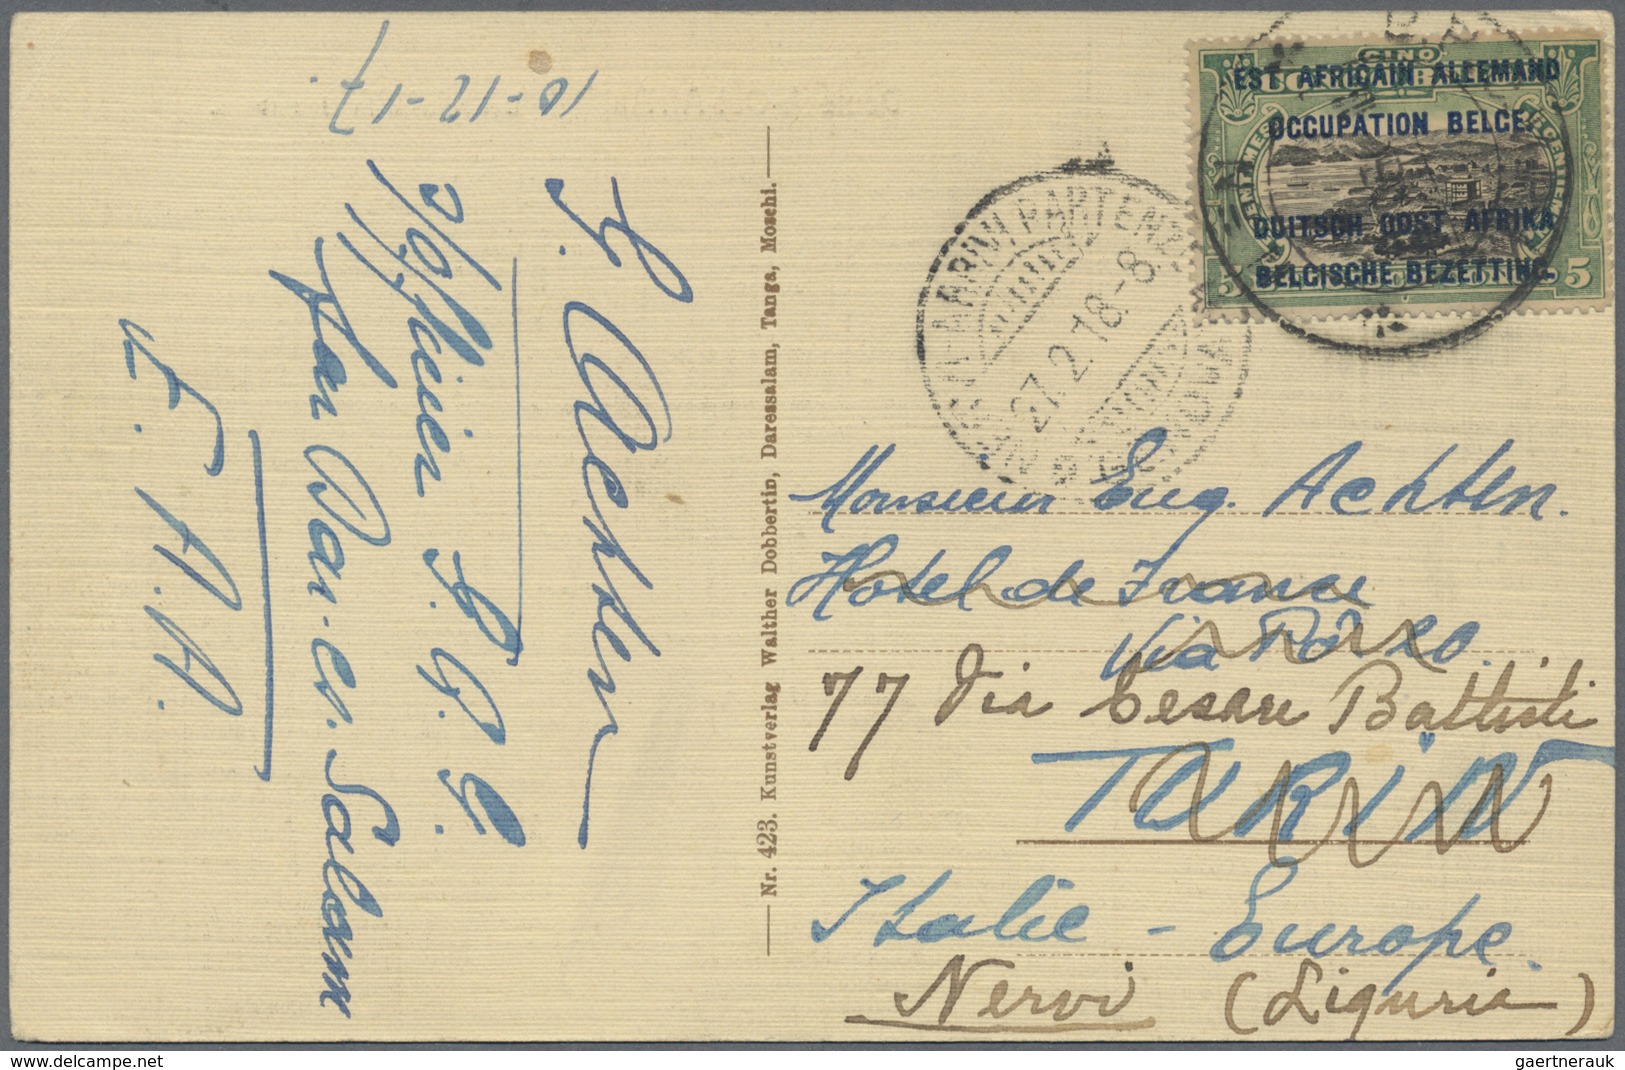 10-12-17.
L. Achten
Officier S. P. G.
Dar-es-Salam
E. A. A.
Nr. 423. Kunstverlag Walther Dobbertin, Daressalam, Tanga, Moschi.
CINQ
EST AFRICAIN ALLEMAND
OCCUPATION BELGE.
DUITSCH OOST AFRIKA
BELGISCHE BEZETTING.
5 5
ARRIVI PARTENZE
27.2.18-8
GENOVA
Monsieur Eug. Achten.
Hotel de France
Via
77 Via Cesare Battisti
TURIN
Italie - Europe.
Nervi (Liguria)
gaertnerauk